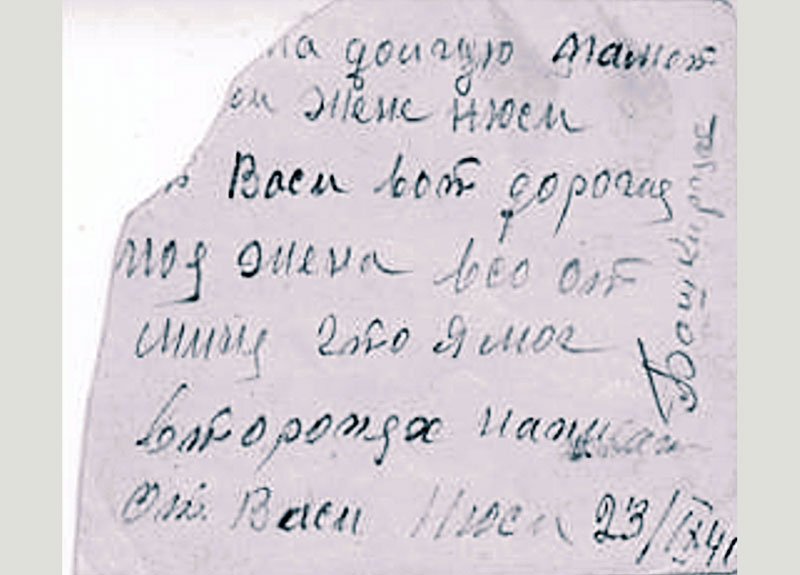 на долгую память
ей Жене Нюси
Васи вот дорогая
моя Жена всо от
миня што я мог
второпях написат
От Васи Нюси 23/IX41
Башкирия